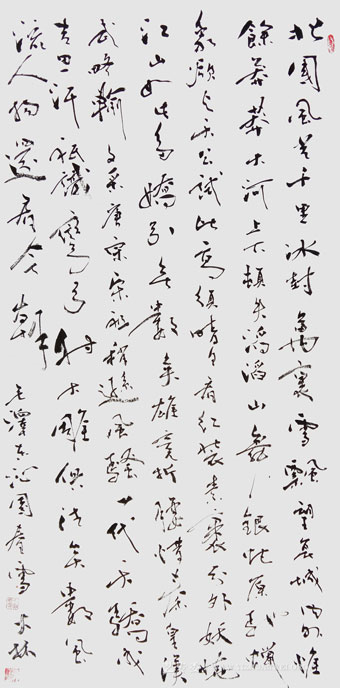 北國風光千里冰封萬裏雪飄望長城內外惟
餘莽莽大河上下頓失滔滔山舞銀蛇原馳蠟
象欲與天公試比高須晴日看紅裝素裹分外妖嬈
江山如此多嬌引無數英雄競折腰惜秦皇漢
武略輸文采唐宗宋祖稍遜風騷一代天驕成
吉思汗祇識彎弓射大雕俱往矣數風
流人物還看今朝 毛澤東沁園春雪